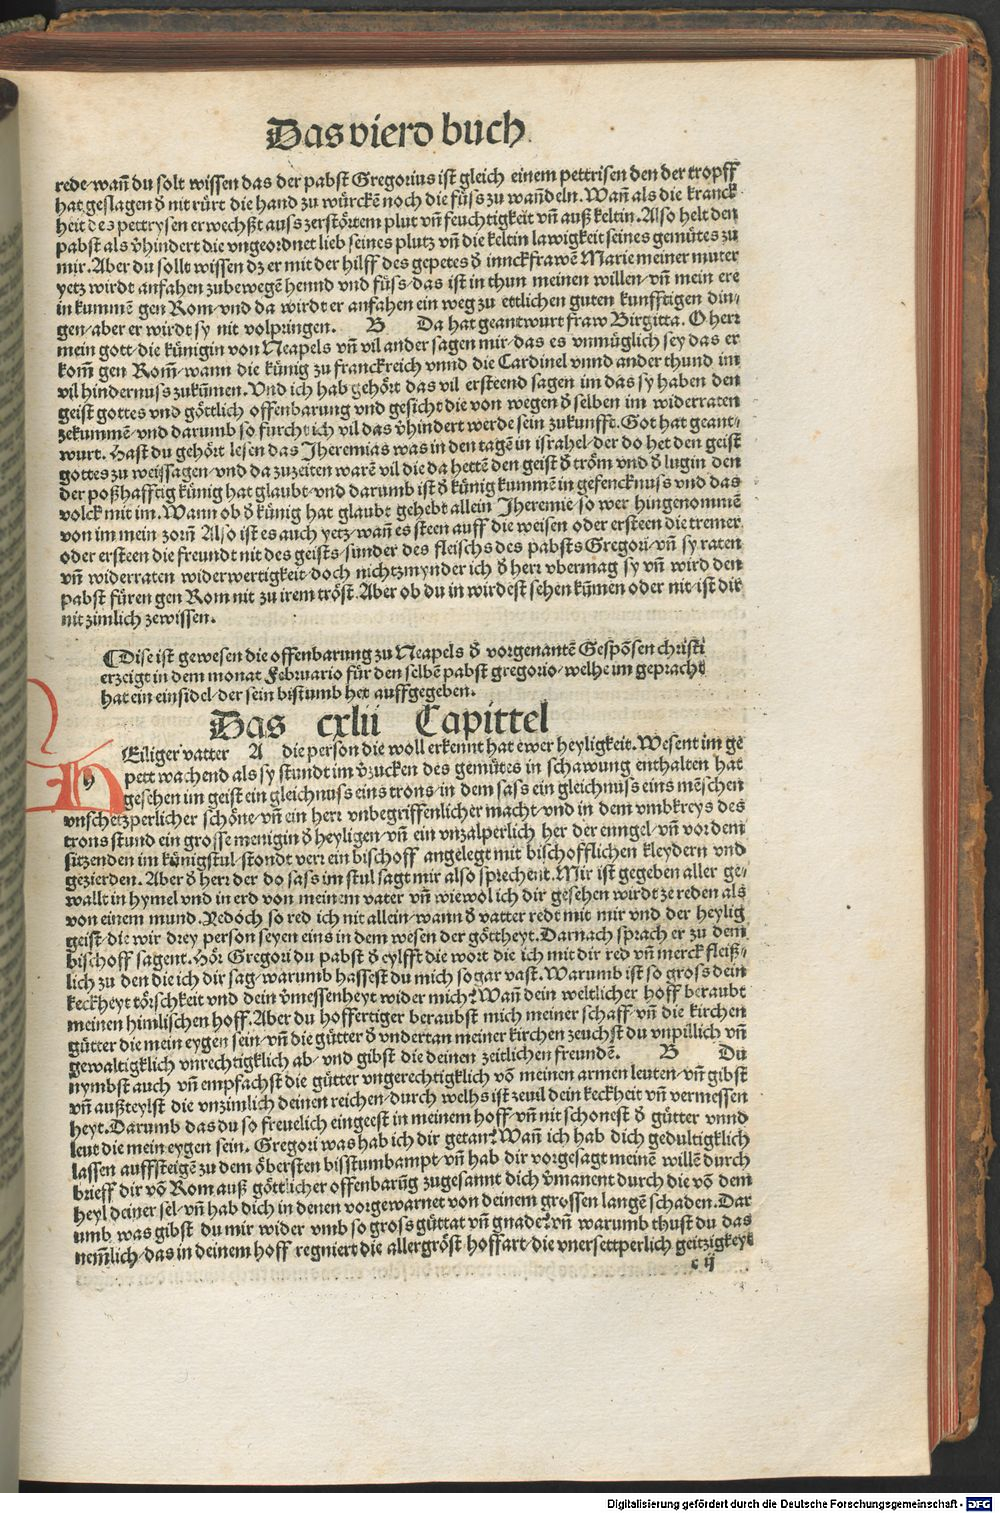 Das vierd buch
rede/wañ du solt wissen das der pabst Gregorius ist gleich einem pettrisen den der tropff
hat geslagen d̄ nit rürt die hand zu würckē noch die füss zu wañdeln. Wañ als die kranck
heit des pettrysen erwechßt auss zerstörtem plut vñ feuchtigkeit vñ auß keltin. Also helt den
pabst als v̄hindert die vngeordnet lieb seines plutz vñ die keltin lawigkeit seines gemütes zu
mir. Aber du sollt wissen dz er mit der hilff des gepetes d̄ innckfrawē Marie meiner muter
yetz wirdt anfahen zubewegē hennd vnd füss/das ist in thun meinen willen/vñ mein ere
in kummē gen Rom/vnd da wirdt er anfahen ein weg zu ettlichen guten kunfftigen din⸗
gen/aber er wirdt sy nit volpringen. B Da hat geantwurt fraw Birgitta. O herr
mein gott/die künigin von Neapels vñ vil ander sagen mir/das es vnmüglich sey das er
kom̄ gen Rom̄/wann die künig zu franckreich vnnd die Cardinel vnnd ander thund im
vil hindernuss zukūmen. Vnd ich hab gehört das vil ersteend sagen im das sy haben den
geist gottes vnd göttlich offenbarung vnd gesicht die von wegen d̄ selben im widerraten
zekummē/vnd darumb so furcht ich vil das v̄hindert werde sein zukunfft. Got hat geant⸗
wurt. Hast du gehört lesen das Jheremias was in den tagē in israhel/der do het den geist
gottes zu weissagen/vnd da zuzeiten warē vil die da hettē den geist d̄ tröm vnd d̄ lugin den
der poßhafftig künig hat glaubt/vnd darumb ist d̄ künig kummē in gefencknuss vnd das
volck mit im. Wann ob d̄ künig hat glaubt gehebt allein Jheremie so wer hingenommē
von im mein zorñ Also ist es auch yetz/wañ es steen auff die weisen oder ersteen die tremer
oder ersteen die freundt nit des geists/sunder des fleischs des pabsts Gregori/vñ sy raten
vñ widerraten widerwertigkeit/doch nichtzmynder ich d̄ herr vbermag sy vñ wird den
pabst füren gen Rom nit zu irem tröst. Aber ob du in wirdest sehen kūmen oder nit/ist dir
nit zimlich zewissen.
¶Dise ist gewesen die offenbarung zu Neapels d̄ vorgenantē Gespōsen christi
erzeigt in dem monat Februario für den selbē pabst gregorio/welhe im gepracht
hat ein einsidel/der sein bistumb het auffgegeben.
Das cxlii Capittel
HEiliger vatter A die person die woll erkennt hat ewer heyligkeit. Wesent im ge
pett wachend als sy stundt im v̄zucken des gemütes in schawung enthalten hat
gesehen im geist ein gleichnuss eins trons/in dem sass ein gleichnuss eins mēschen
vnschetzperlicher schöne/vñ ein herr vnbegriffenlicher macht/vnd in dem vmbkreys des
trons stund ein grosse menigin d̄ heyligen/vñ ein vnzalperlich her der enngel/vñ vor dem
sitzenden im künigstul/stondt verr ein bischoff angelegt mit bischofflichen kleydern vnd
gezierden. Aber d̄ herr der do sass im stul sagt mir also sprechent. Mir ist gegeben aller ge⸗
wallt in hymel vnd in erd von meinem vater vñ wiewol ich dir gesehen wirdt ze reden als
von einem mund. Yedoch so red ich nit allein/wann d̄ vatter redt mit mir vnd der heylig
geist/die wir drey person seyen eins in dem wesen der göttheyt. Darnach sprach er zu dem
bischoff sagent. Hör Gregori du pabst d̄ eylfft die wort die ich mit dir red vñ merck fleiß⸗
lich zu den die ich dir sag/warumb hassest du mich so gar vast. Warumb ist so gross dein
keckheyt törschkeit vnd dein v̄messenheyt wider mich? Wañ dein weltlicher hoff beraubt
meinen himlischen hoff. Aber du hoffertiger beraubst mich meiner schaff/vñ die kirchen
gütter die mein eygen sein/vñ die gütter d̄ vndertan meiner kirchen zeuchst du vnpillich vñ
gewaltigklich vnrechtigklich ab/vnd gibst die deinen zeitlichen freundē. B Du
nymbst auch vñ empfachst die gütter vngerechtigklich vō meinen armen leuten/vñ gibst
vñ außteylst die vnzimlich deinen reichen/durch welhs ist zeuil dein keckheit vñ vermessen
heyt. Darumb das du so freuelich eingeest in meinem hoff/vñ nit schonest d̄ gütter vnnd
leut die mein eygen sein. Gregori was hab ich dir getan? Wañ ich hab dich gedultigklich
lassen auffsteigē zu dem öbersten bisstumbampt/vñ hab dir vorgesagt meinē willē durch
brieff dir vō Rom auß göttlicher offenbarūg zugesannt dich v̄manent durch die vō dem
heyl deiner sel/vñ hab dich in denen vorgewarnet von deinem grossen langē schaden. Dar
umb was gibst du mir wider vmb so gross güttat vñ gnade? vñ warumb thust du das
nem̄lich/das in deinem hoff regniert die allergröst hoffart/die vnersettperlich geitzigkeyt
c ij
Digitalisierung gefördert durch die Deutsche Forschungsgemeinschaft - DFG